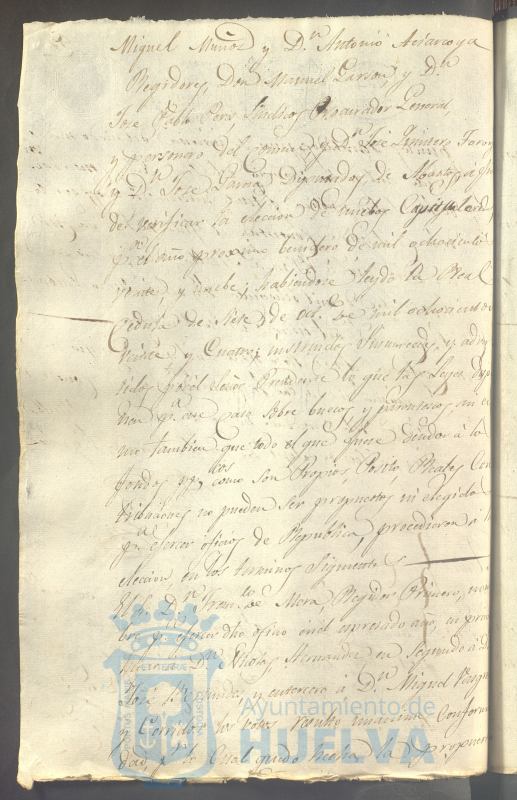 Miguel Muñoz y Dn. Antonio
Regidores, Don Manuel Garson, y Dn.
José Pablo Perez Sindicos Procurador General
y personero del comun y Dn. José Quintero
y Dn. José Diputados de Abastos, a fin
de verificar la eleccion de nuebos Capitulares
pa. el año proximo benidero de mil ochocientos
veinte, y nuebe; habiendose leydo la Real
Cedula de Siete de de mil ochocientos
veinte y Cuatro, instruidos Sus mercedes, y adver
tidos por el Señor Presidente lo que las Leyes dispo
nen pa. este caso sobre huecos, y parentescos, asi co
mo tambien que todo el que fuese deudor á los
fondos ppcos. como son Propios, Posito Reales Con
tribuciones no pueden ser propuestos ni elegidos
pa. ejercer oficios de Republica, procedieron á
eleccion, en los terminos Siguientes
El Sr. Dn. Franco. de Mora, Regidor Primero, nom
bró pa. ejercer dho oficio en el espresado año, en primer
lugar á Dn. Nicolas Hernandez en segundo á Dn.
José y en tercero á Dn. Miguel Vazquez
y Corridos los votos resultó unanime Conformi
dad, y lo Cual quedó hecha la propuesta
Ayuntamiento de
HUELVA